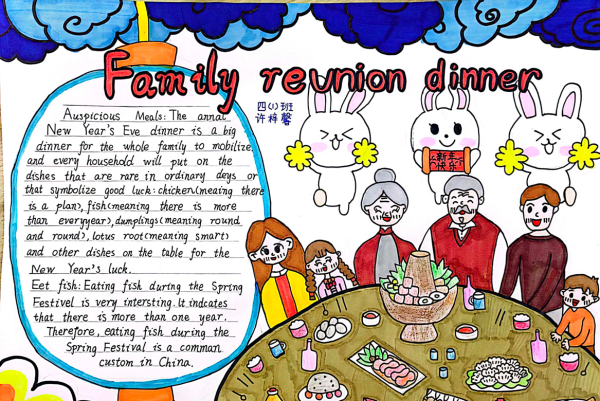 Family reunion dinner
四(1)班
许梓馨
Auspicious Meals: The annal
New Year's Eve dinner is a big
dinner for the whole family to mobilize
and every household will put on the
dishes that are rare in ordinary days or
that symbolize good luck: chicken(meaning there
is a plan), fish(meaning there is more
than everyyear), dumplings(meaning round
and round), lotus root(meaning smart)
and other dishes on the table for the
New Year's luck.
Eet fish: Eating fish during the Spring
Festivel is very intersting. It indcates
that there is more than one year.
Therefore, eating fish during the
Spring Festival is a comman
custom in China.